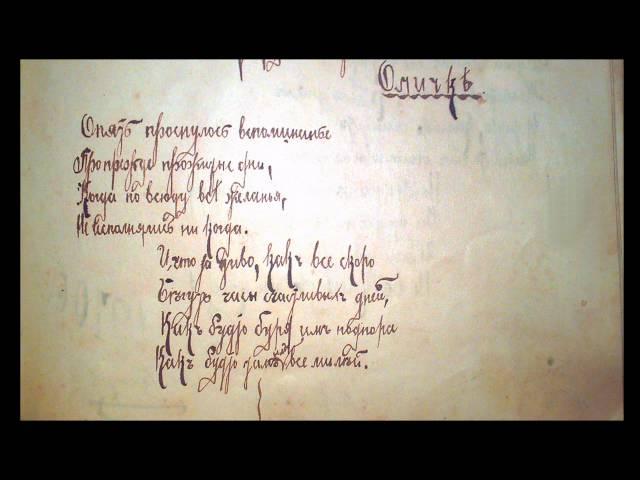 Оличкѣ.
Опять проснулось вспоминанье
Про прежде прожитые дни,
Когда по всюду всѣ желанья,
Не исполнялись ни когда.
И что за диво, какъ все скоро
Бѣгутъ часы счастливыхъ дней,
Какъ будто буря имъ подпора
Какъ будто тамъ все милѣй.